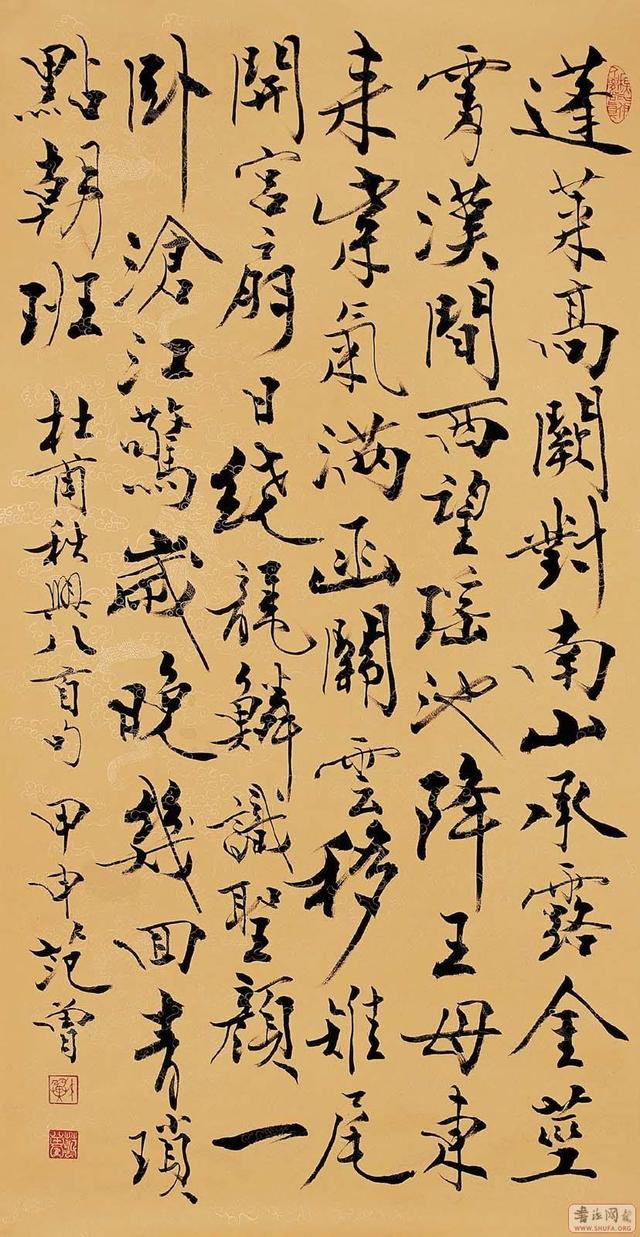 蓬萊高闕對南山承露金莖
霄漢間西望瑶池降王母東
来紫氣满函關雲移雉尾
開宮扇日繞龍鱗識聖顔一
卧滄江驚歲晚幾回青瑣
點朝班
杜甫秋興八首句 甲申 范曾
書法網
WWW.SHUFA.ORG